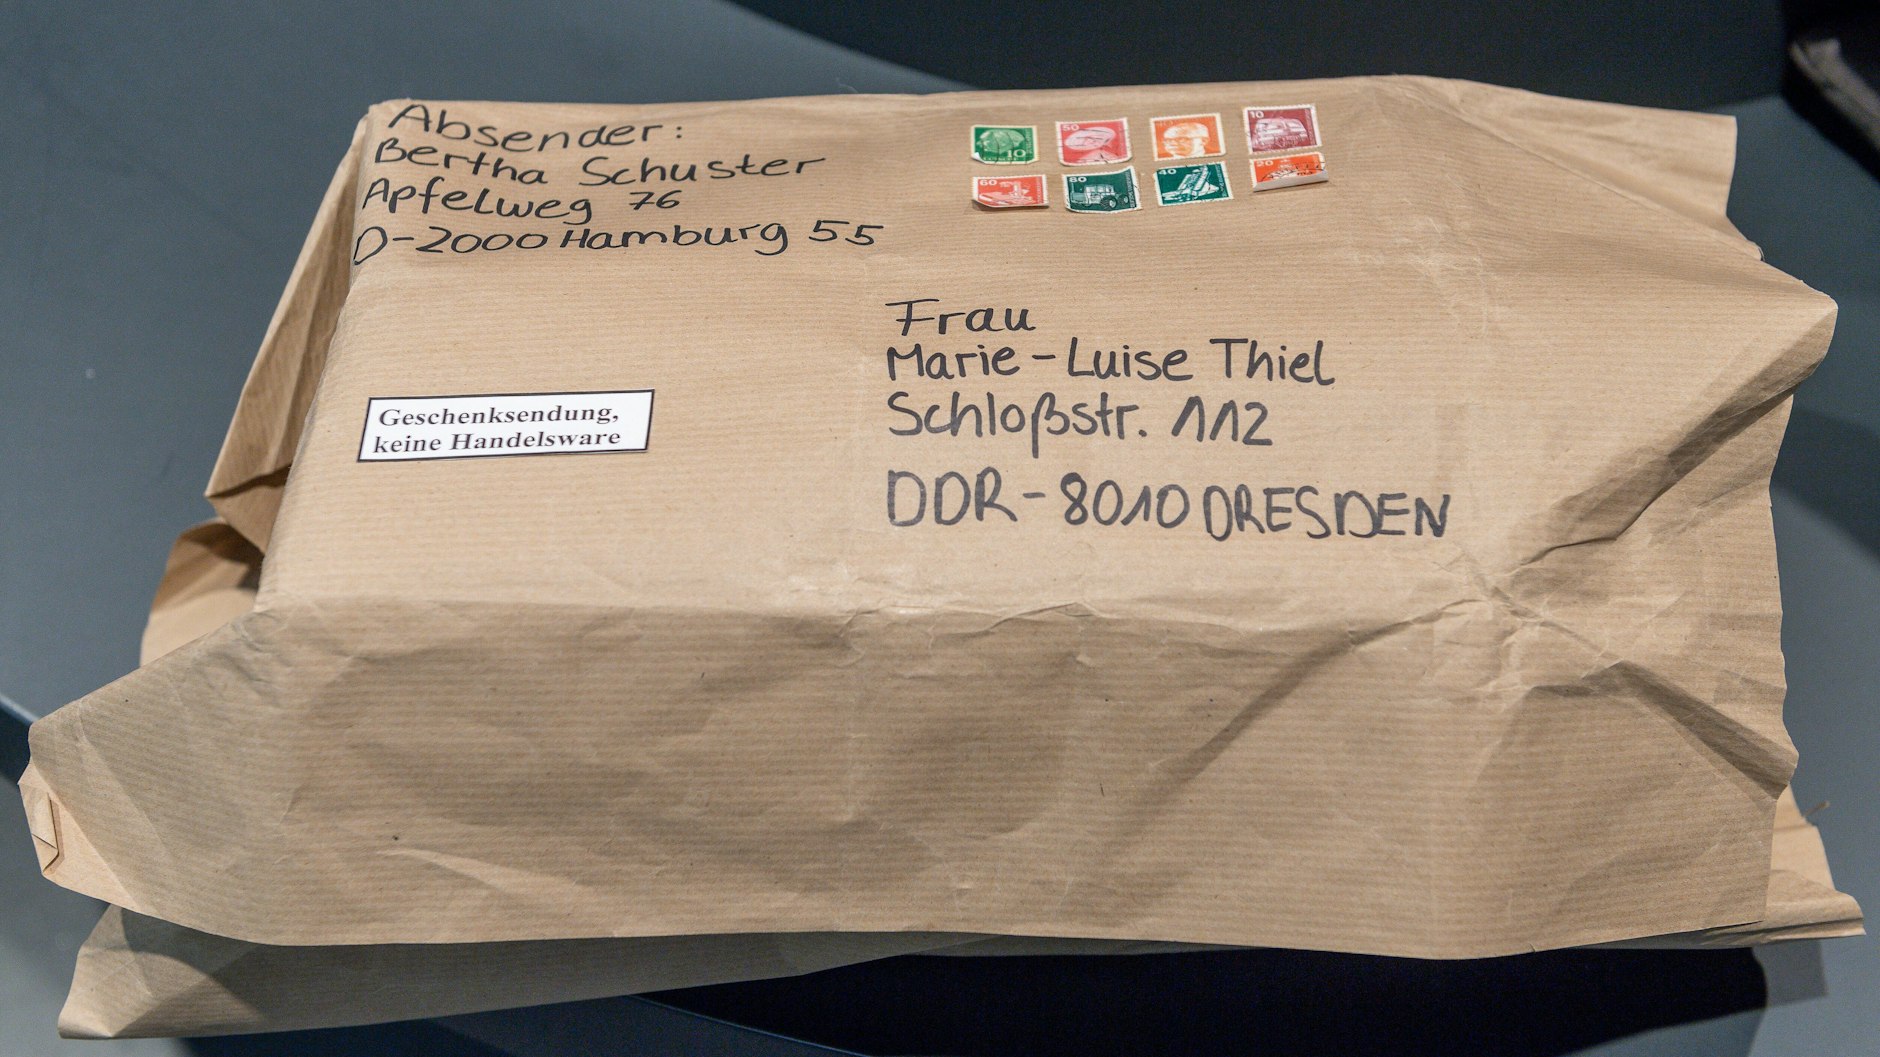 Absender:
Bertha Schuster
Apfelweg 76
D-2000 Hamburg 55
10
50
10
60
80
40
20
Geschenksendung,
keine Handelsware
Frau
Marie-Luise Thiel
Schloßstr. 112
DDR-8010 DRESDEN